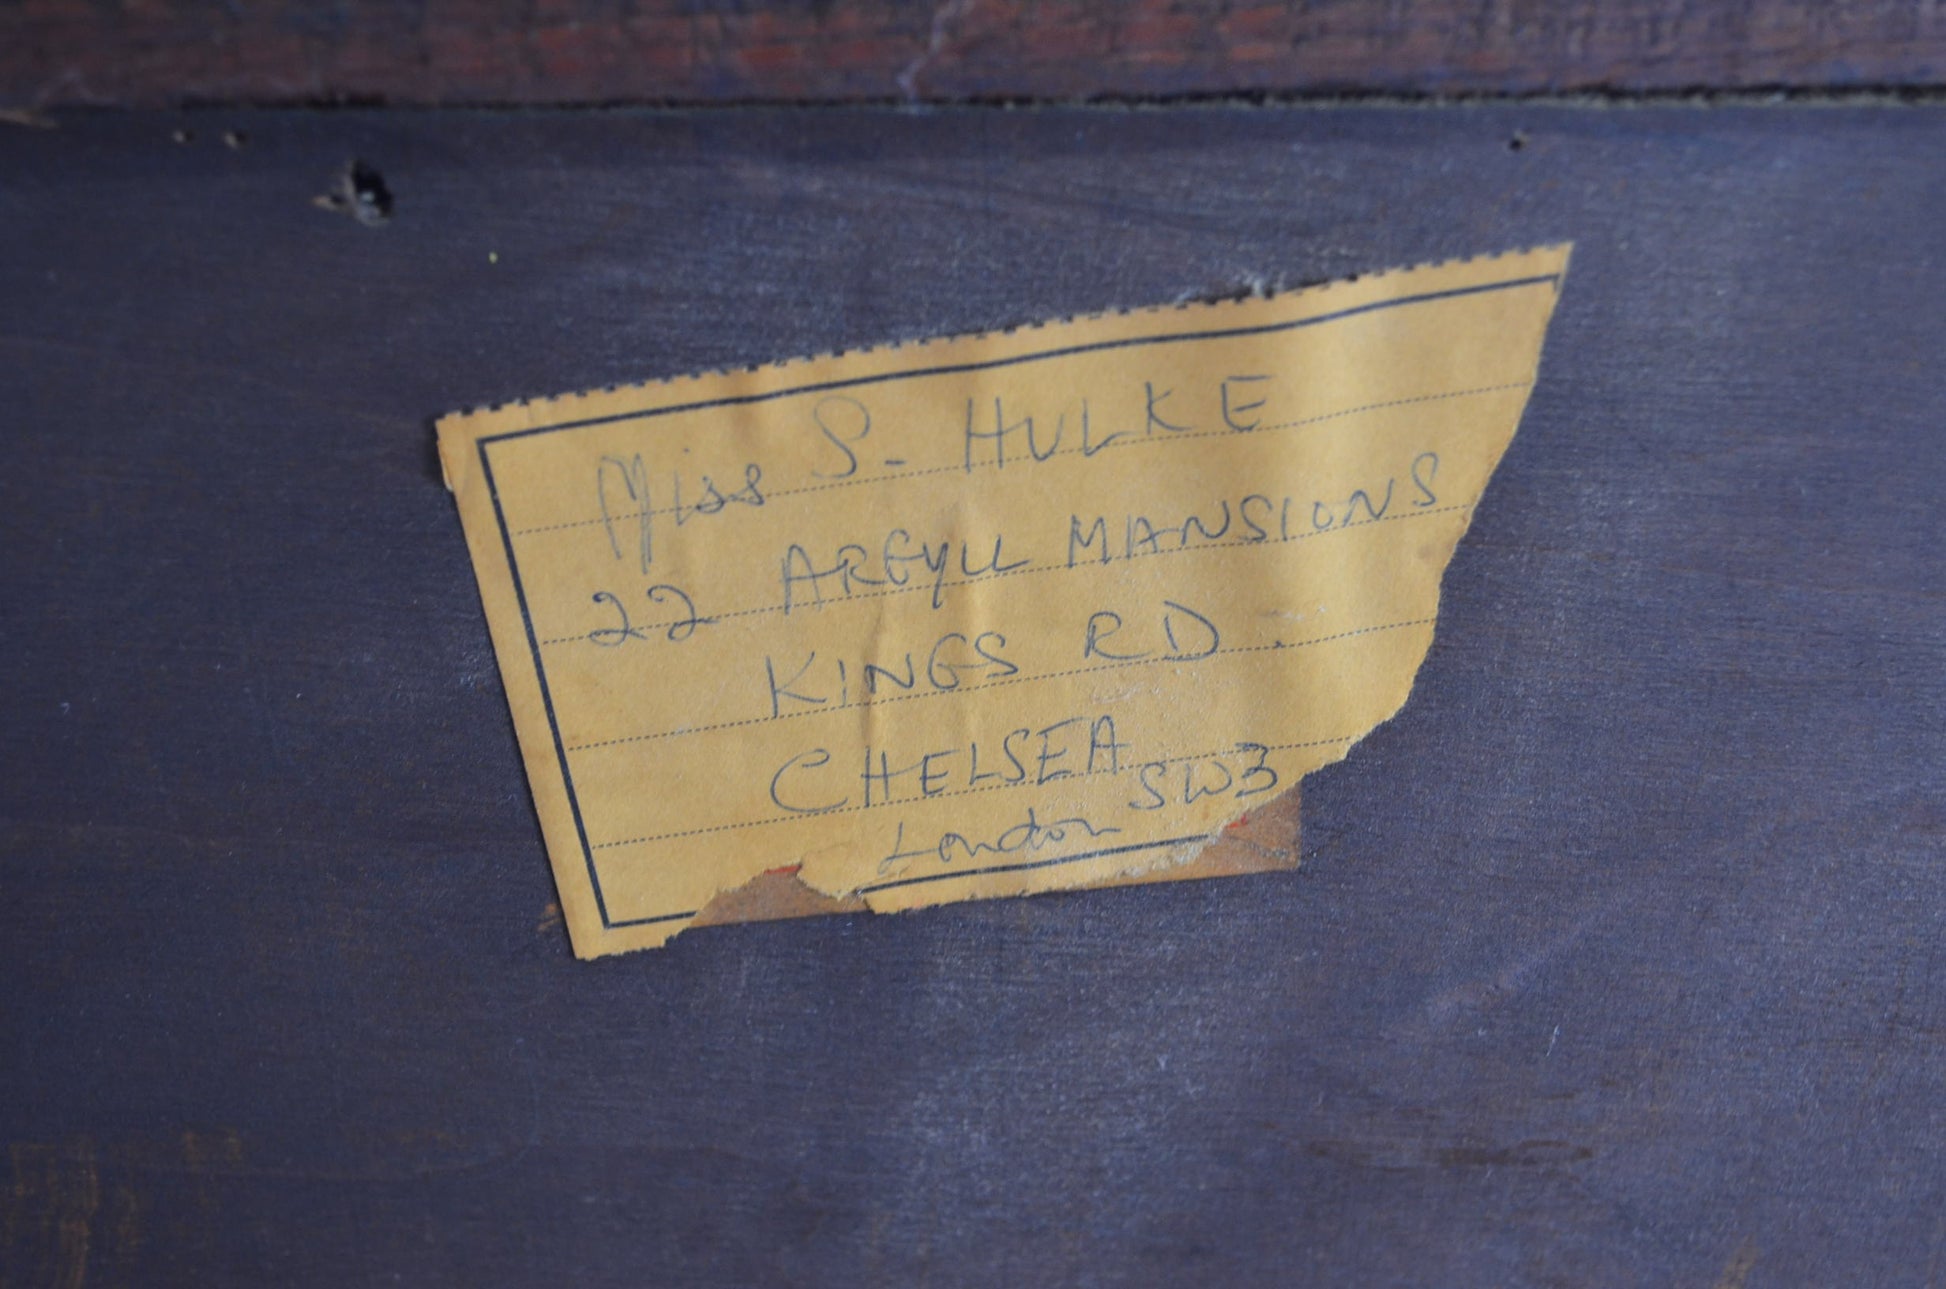 Miss S. HULKE
22 ARGYLL MANSIONS
KINGS RD.
CHELSEA
London SW3